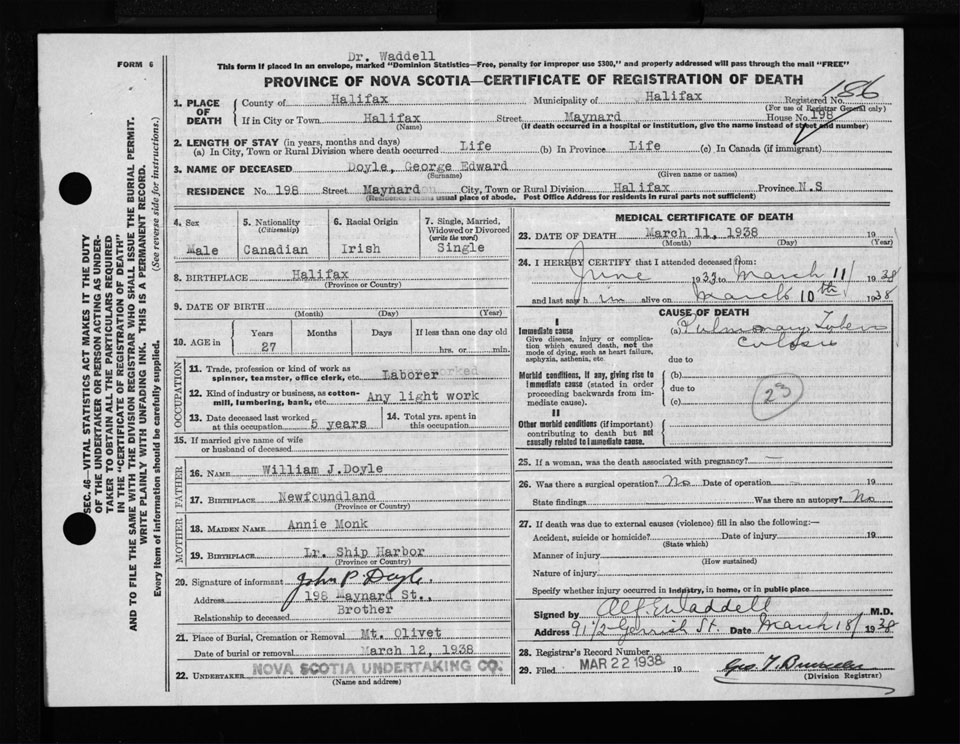 Dr. Waddell
FORM 6
This form if placed in an envelope, marked "Dominion Statistics—Free, penalty for improper use $300," and properly addressed will pass through the mail "FREE"
PROVINCE OF NOVA SCOTIA—CERTIFICATE OF REGISTRATION OF DEATH
186
1. PLACE OF DEATH
County of Halifax Municipality of Halifax Registered No.
(For use of Registrar General only)
If in City or Town Halifax Street Maynard House No. 198
(Name) (If death occurred in a hospital or institution, give the name instead of street and number)
2. LENGTH OF STAY (in years, months and days)
(a) In City, Town or Rural Division where death occurred Life (b) In Province Life (c) In Canada (if immigrant)
3. NAME OF DECEASED Doyle, George Edward
(Surname) (Given name or names)
RESIDENCE No. 198 Street Maynard City, Town or Rural Division Halifax Province N.S
(Residence means usual place of abode. Post Office Address for residents in rural parts not sufficient)
4. Sex Male
5. Nationality (Citizenship) Canadian
6. Racial Origin Irish
7. Single, Married, Widowed or Divorced (write the word) Single
8. BIRTHPLACE Halifax
(Province or Country)
9. DATE OF BIRTH
(Month) (Day) (Year)
10. AGE in
Years Months Days If less than one day old
27 hrs. or min.
OCCUPATION
11. Trade, profession or kind of work as spinner, teamster, office clerk, etc. Laborer
12. Kind of industry or business, as cotton-mill, lumbering, bank, etc. Any light work
13. Date deceased last worked at this occupation 5 years
14. Total yrs. spent in this occupation
15. If married give name of wife or husband of deceased
FATHER
16. NAME William J.Doyle
17. BIRTHPLACE Newfoundland
(Province or Country)
MOTHER
18. MAIDEN NAME Annie Monk
19. BIRTHPLACE Lr. Ship Harbor
(Province or Country)
20. Signature of informant John P. Doyle.
Address 198 Maynard St.,
Relationship to deceased Brother
21. Place of Burial, Cremation or Removal Mt. Olivet
Date of burial or removal March 12, 1938
22. UNDERTAKER NOVA SCOTIA UNDERTAKING CO.
(Name and address)
MEDICAL CERTIFICATE OF DEATH
23. DATE OF DEATH March 11, 1938 19
(Month) (Day) (Year)
24. I HEREBY CERTIFY that I attended deceased from:
June 1933 to March 11/ 1938
and last saw him alive on March 10th 1938
CAUSE OF DEATH
I
Immediate cause
Give disease, injury or complication which caused death, not the mode of dying, such as heart failure, asphyxia, asthenia, etc.
(a) Pulmonary Tuberculosis
due to
Morbid conditions, if any, giving rise to immediate cause (stated in order proceeding backwards from immediate cause).
(b)
due to
(c)
23
II
Other morbid conditions (if important) contributing to death but not causally related to immediate cause.
25. If a woman, was the death associated with pregnancy? —
26. Was there a surgical operation? No Date of operation 19
State findings Was there an autopsy? No
27. If death was due to external causes (violence) fill in also the following:—
Accident, suicide or homicide? Date of injury 19
(State which)
Manner of injury
(How sustained)
Nature of injury
Specify whether injury occurred in industry, in home, or in public place
Signed by Alf. E. Waddell M.D.
Address 91 1/2 Gerrish St. Date March 18/ 1938
28. Registrar's Record Number
29. Filed MAR 22 1938 19
(Division Registrar)
SEC. 46—VITAL STATISTICS ACT MAKES IT THE DUTY
OF THE UNDERTAKER OR PERSON ACTING AS UNDERTAKER
TO OBTAIN ALL THE PARTICULARS REQUIRED
IN THE "CERTIFICATE OF REGISTRATION OF DEATH"
AND TO FILE THE SAME WITH THE DIVISION REGISTRAR WHO SHALL ISSUE THE BURIAL PERMIT.
WRITE PLAINLY WITH UNFADING INK. THIS IS A PERMANENT RECORD.
Every item of information should be carefully supplied. (See reverse side for instructions.)